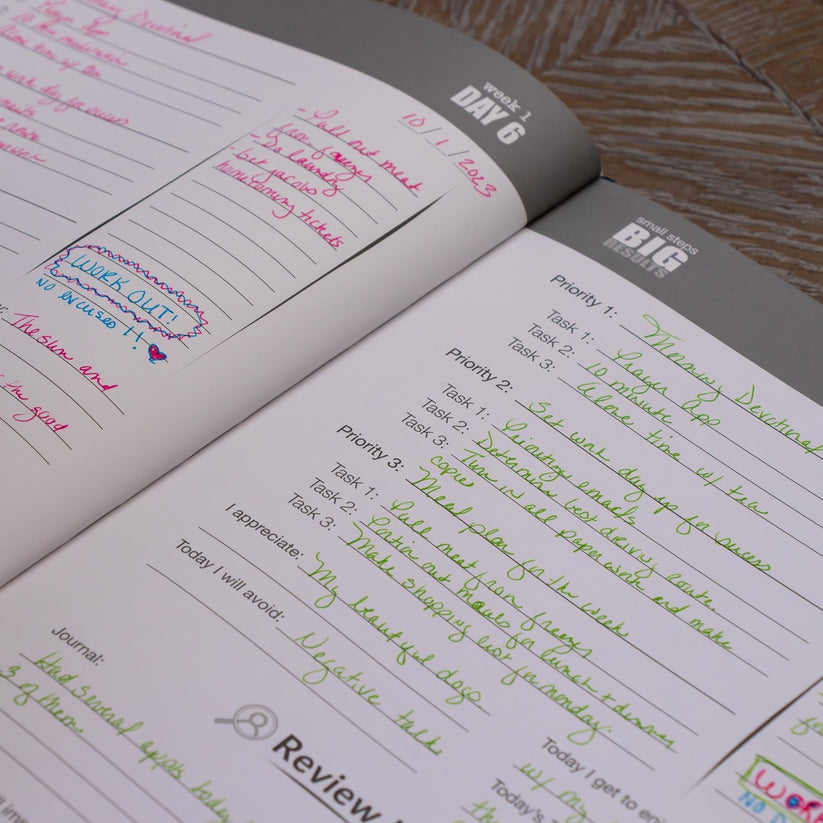 Devotional
Prayer App
10 min
work day for success
emails
week 1
DAY 6
10/1/2023
- Pull out meat
from freezer
- Do laundry
- Get Jacobs
homecoming tickets
WORK OUT!
NO EXCUSES!!
The sun and
the good
small steps
BIG
RESULTS
Priority 1: Morning Devotional
Task 1: Prayer App
Task 2: 10 minute
Task 3: Alone time w/ tea
Priority 2: Set work day up for success
Task 1: Prioritize emails
Task 2: Determine best driving route
Task 3: Turn in all paperwork and make
copies
Priority 3: Meal plan for the week
Task 1: Pull meat from freezer
Task 2: Portion out meals for lunch + dinner
Task 3: Make shopping list for Monday.
I appreciate: My beautiful dogs
Today I will avoid: Negative talk
Journal:
Had several appts today
3 of them.
Review
Today I get to enj
w/ my
Today's
th
WORK
NO